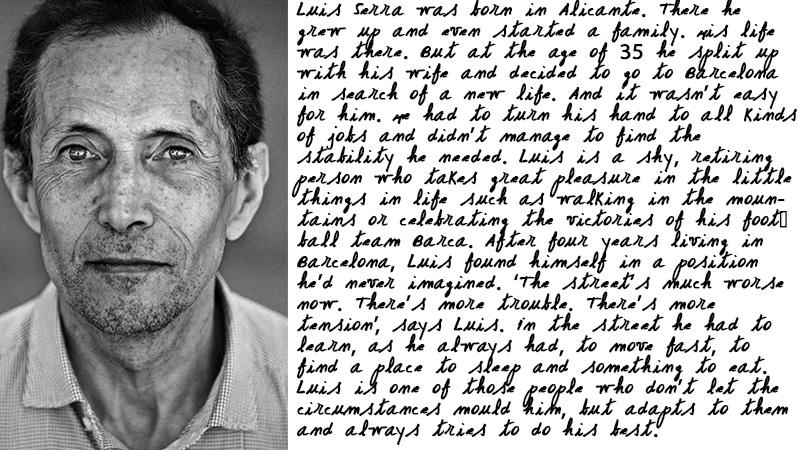 Luis Serra was born in Alicante. There he
grew up and even started a family. His life
was there. But at the age of 35 he split up
with his wife and decided to go to Barcelona
in search of a new life. And it wasn't easy
for him. He had to turn his hand to all kinds
of jobs and didn't manage to find the
stability he needed. Luis is a shy, retiring
person who takes great pleasure in the little
things in life such as walking in the moun-
tains or celebrating the victories of his foot▯
ball team Barca. After four years living in
Barcelona, Luis found himself in a position
he'd never imagined. 'The street's much worse
now. There's more trouble. There's more
tension', says Luis. In the street he had to
learn, as he always had, to move fast, to
find a place to sleep and something to eat.
Luis is one of those people who don't let the
circumstances mould him, but adapts to them
and always tries to do his best.